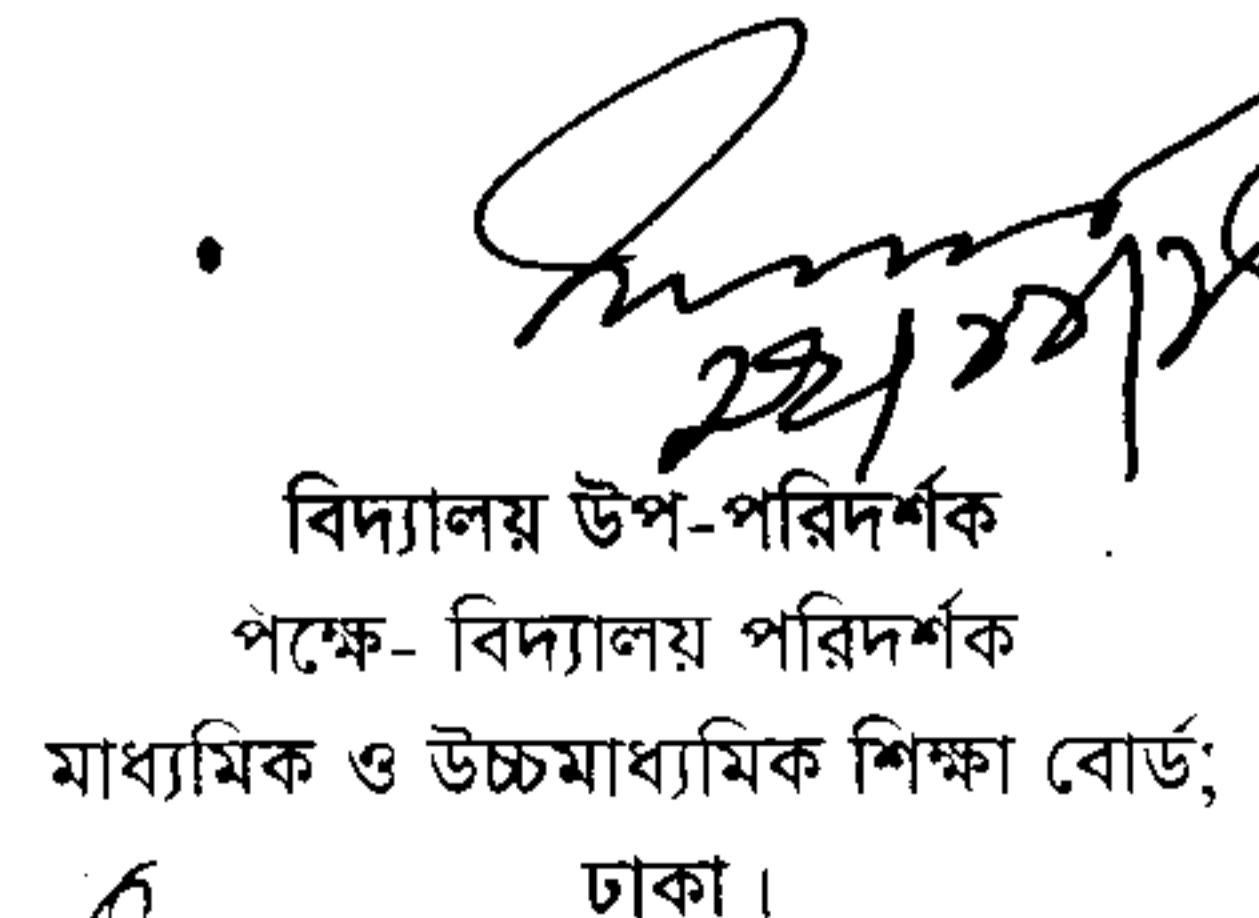 বিদ্যালয় উপ-পরিদর্শক
পক্ষে- বিদ্যালয় পরিদর্শক
মাধ্যমিক ও উচ্চমাধ্যমিক শিক্ষা বোর্ড;
ঢাকা।